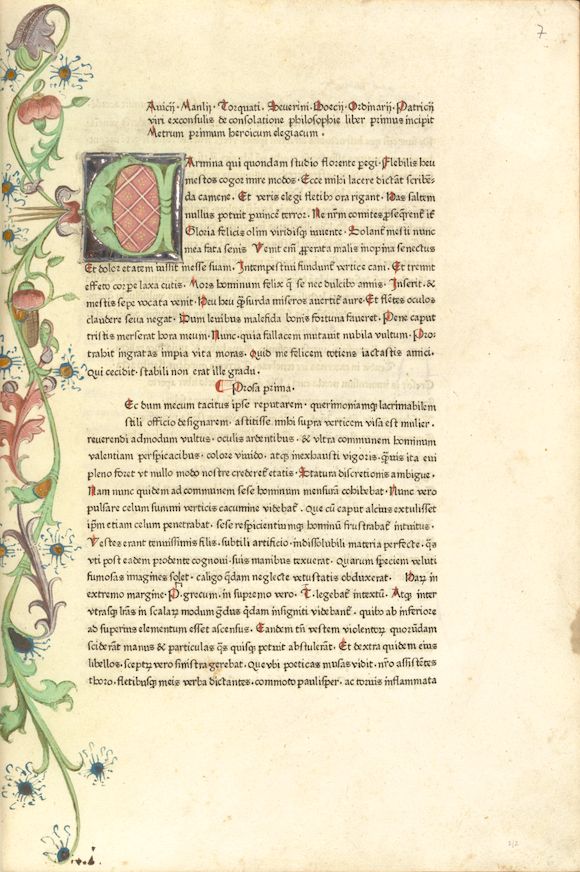 7
Anicij · Manlij · Torquati · Seuerini · Boecij · Ordinarij · Patricij
viri exconsulis de consolatione philosophie liber primus incipit
Metrum primum heroicum elegiacum ·
CArmina qui quondam studio florente pegi · Flebilis heu
mestos cogor inire modos · Ecce mihi lacere dictāt scribē-
da camene · Et veris elegi fletibꝰ ora rigant · Has saltem
nullus potuit ꝑuincĕ terror · Ne nr̄m comites ꝓseq̄rent᷑ it᷑
Gloria felicis olim viridisqꝫ iuuente · Solant᷑ mesti nunc
mea fata senis Venit em̄ ꝓperata malis inopina senectus
Et dolor etatem iussit inesse suam · Intempestiui fundunt᷑ vertice cani · Et tremit
effeto corꝑe laxa cutis · Mors hominum felix q̄ se nec dulcibꝰ annis · Inserit · &
mestis sepe vocata venit · Heu heu q̄ꝫ surda miseros auertit᷑ aure · Et flētes oculos
claudere seua negat · Dum leuibus malefida bonis fortuna faueret · Pene caput
tristis merserat hora meum · Nunc · quia fallacem mutauit nubila vultum · Pro-
trahit ingratas impia vita moras · Quid me felicem totiens iactastis amici ·
qui cecidit · stabili non erat ille gradu ·
Prosa prima ·
Ec dum mecum tacitus ipse reputarem · querimoniamqꝫ lacrimabilem
stili officio designarem · astitisse mihi supra verticem visa est mulier ·
reuerendi admodum vultus · oculis ardentibus · & vltra communem hominum
valentiam perspicacibus · colore viuido · atqꝫ inexhausti vigoris · q̄muis ita eui
pleno foret vt nullo modo nostre crederet᷑ etatis · Statura discretionis ambigue ·
Nam nunc quidem ad communem sese hominum mensurā cohibebat · Nunc vero
pulsare celum summi verticis cacumine videbat᷑ · Que cū caput alcius extulisset
ip̄m etiam celum penetrabat · sese respicientiumqꝫ hominū frustrabat᷑ intuitus ·
Vestes erant tenuissimis filis · subtili artificio · indissolubili materia perfecte · q̄s
vti post eadem prodente cognoui · suis manibus texuerat · Quarum speciem veluti
fumosas imagines solet · caligo q̄dam neglecte vetustatis obduxerat · Harꝫ in
extremo margine · P · grecum · in supremo vero · T · legebat᷑ intextū · Atqꝫ inter
vtrasqꝫ lr̄as in scalarꝫ modum g̈dus q̄dam insigniti videbant᷑ · quibꝰ ab inferiore
ad superius elementum esset ascensus · Eandem tn̄ vestem violentorꝫ quorūdam
sciderāt manus & particulas q̄s quisqꝫ potuit abstulerāt · Et dextra quidem eius
libellos · sceptrꝫ vero sinistra gerebat · Que vbi poeticas musas vidit · nr̄o assistētes
thoro · fletibusqꝫ meis verba dictantes · commoto paulisper · ac toruis inflammata